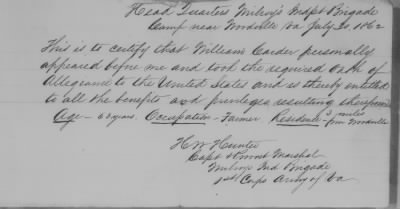 Head Quarters Milroy's Indpt Brigade
Camp near Woodville Va July 20, 1862
This is to certify that William Carder personally
appeared before me and took the required Oath of
Allegiance to the United States and is thereby entitled
to all the benefits and privileges resulting therefrom
Age - 63 years. Occupation - Farmer Residence 3 miles
from Woodville
H W Hunter
Capt & Provost Marshal
Milroys Ind Brigade
1st Corps Army of Va